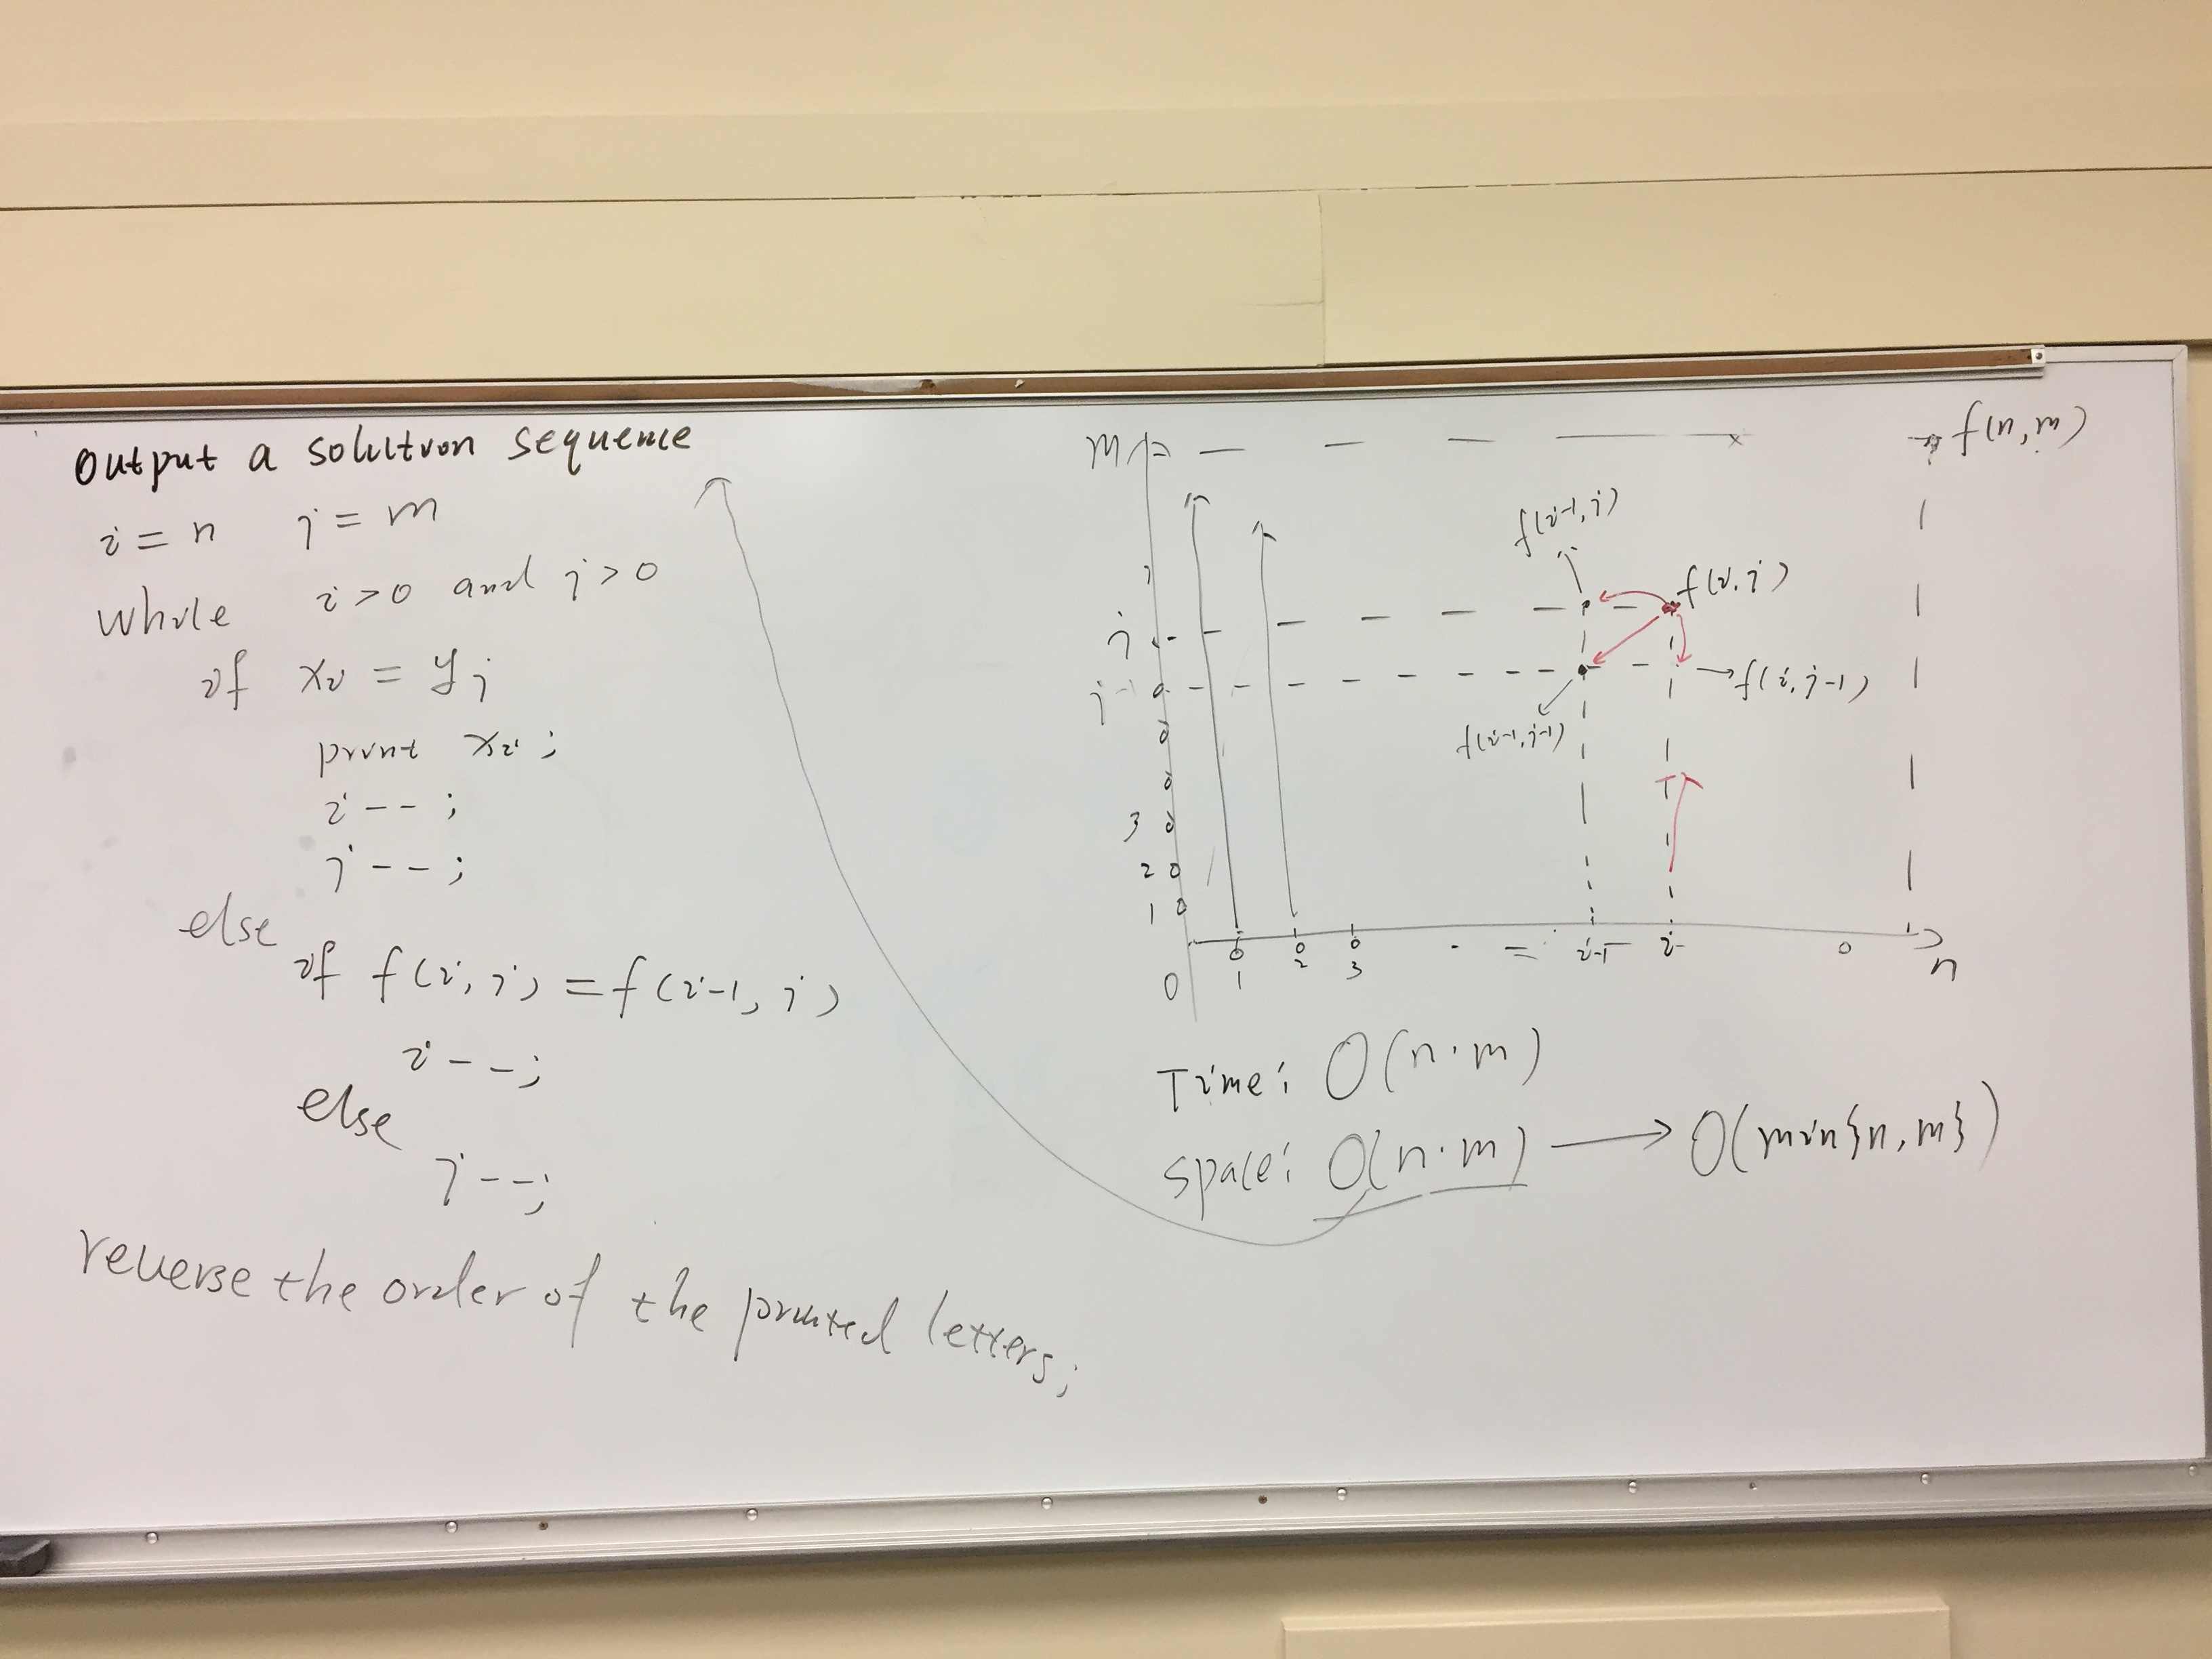 output a solution sequence
i = n j = m
while i > 0 and j > 0
if xi = yj
print xi ;
i -- ;
j -- ;
else
if f(i, j) = f(i-1, j)
i -- ;
else
j -- ;
reverse the order of the printed letters;
m
f(n, m)
f(i-1, j)
f(i, j)
j
j-1
f(i, j-1)
f(i-1, j-1)
0
0
3 0
2 0
1 0
0 0 0 i-1 i 0 n
0 1 2 3
Time: O(n·m)
space: O(n·m) → O(min{n, m})